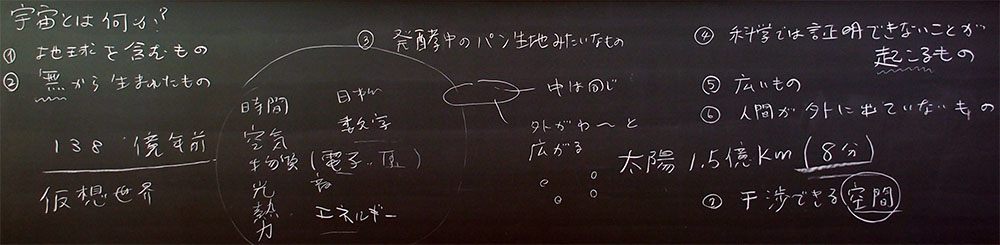 宇宙とは何か?
① 地球を含むもの
② 無から生まれたもの
138億年前
仮想世界
③ 発酵中のパン生地みたいなもの
時間
空気
物質(電子
光
熱
力
数字
音
エネルギー
中は同じ
外がわ〜と
広がる
④ 科学では証明できないことが
起こるもの
⑤ 広いもの
⑥ 人間が外に出ていないもの
太陽 1.5億Km(8分)
⑦ 干渉できる空間